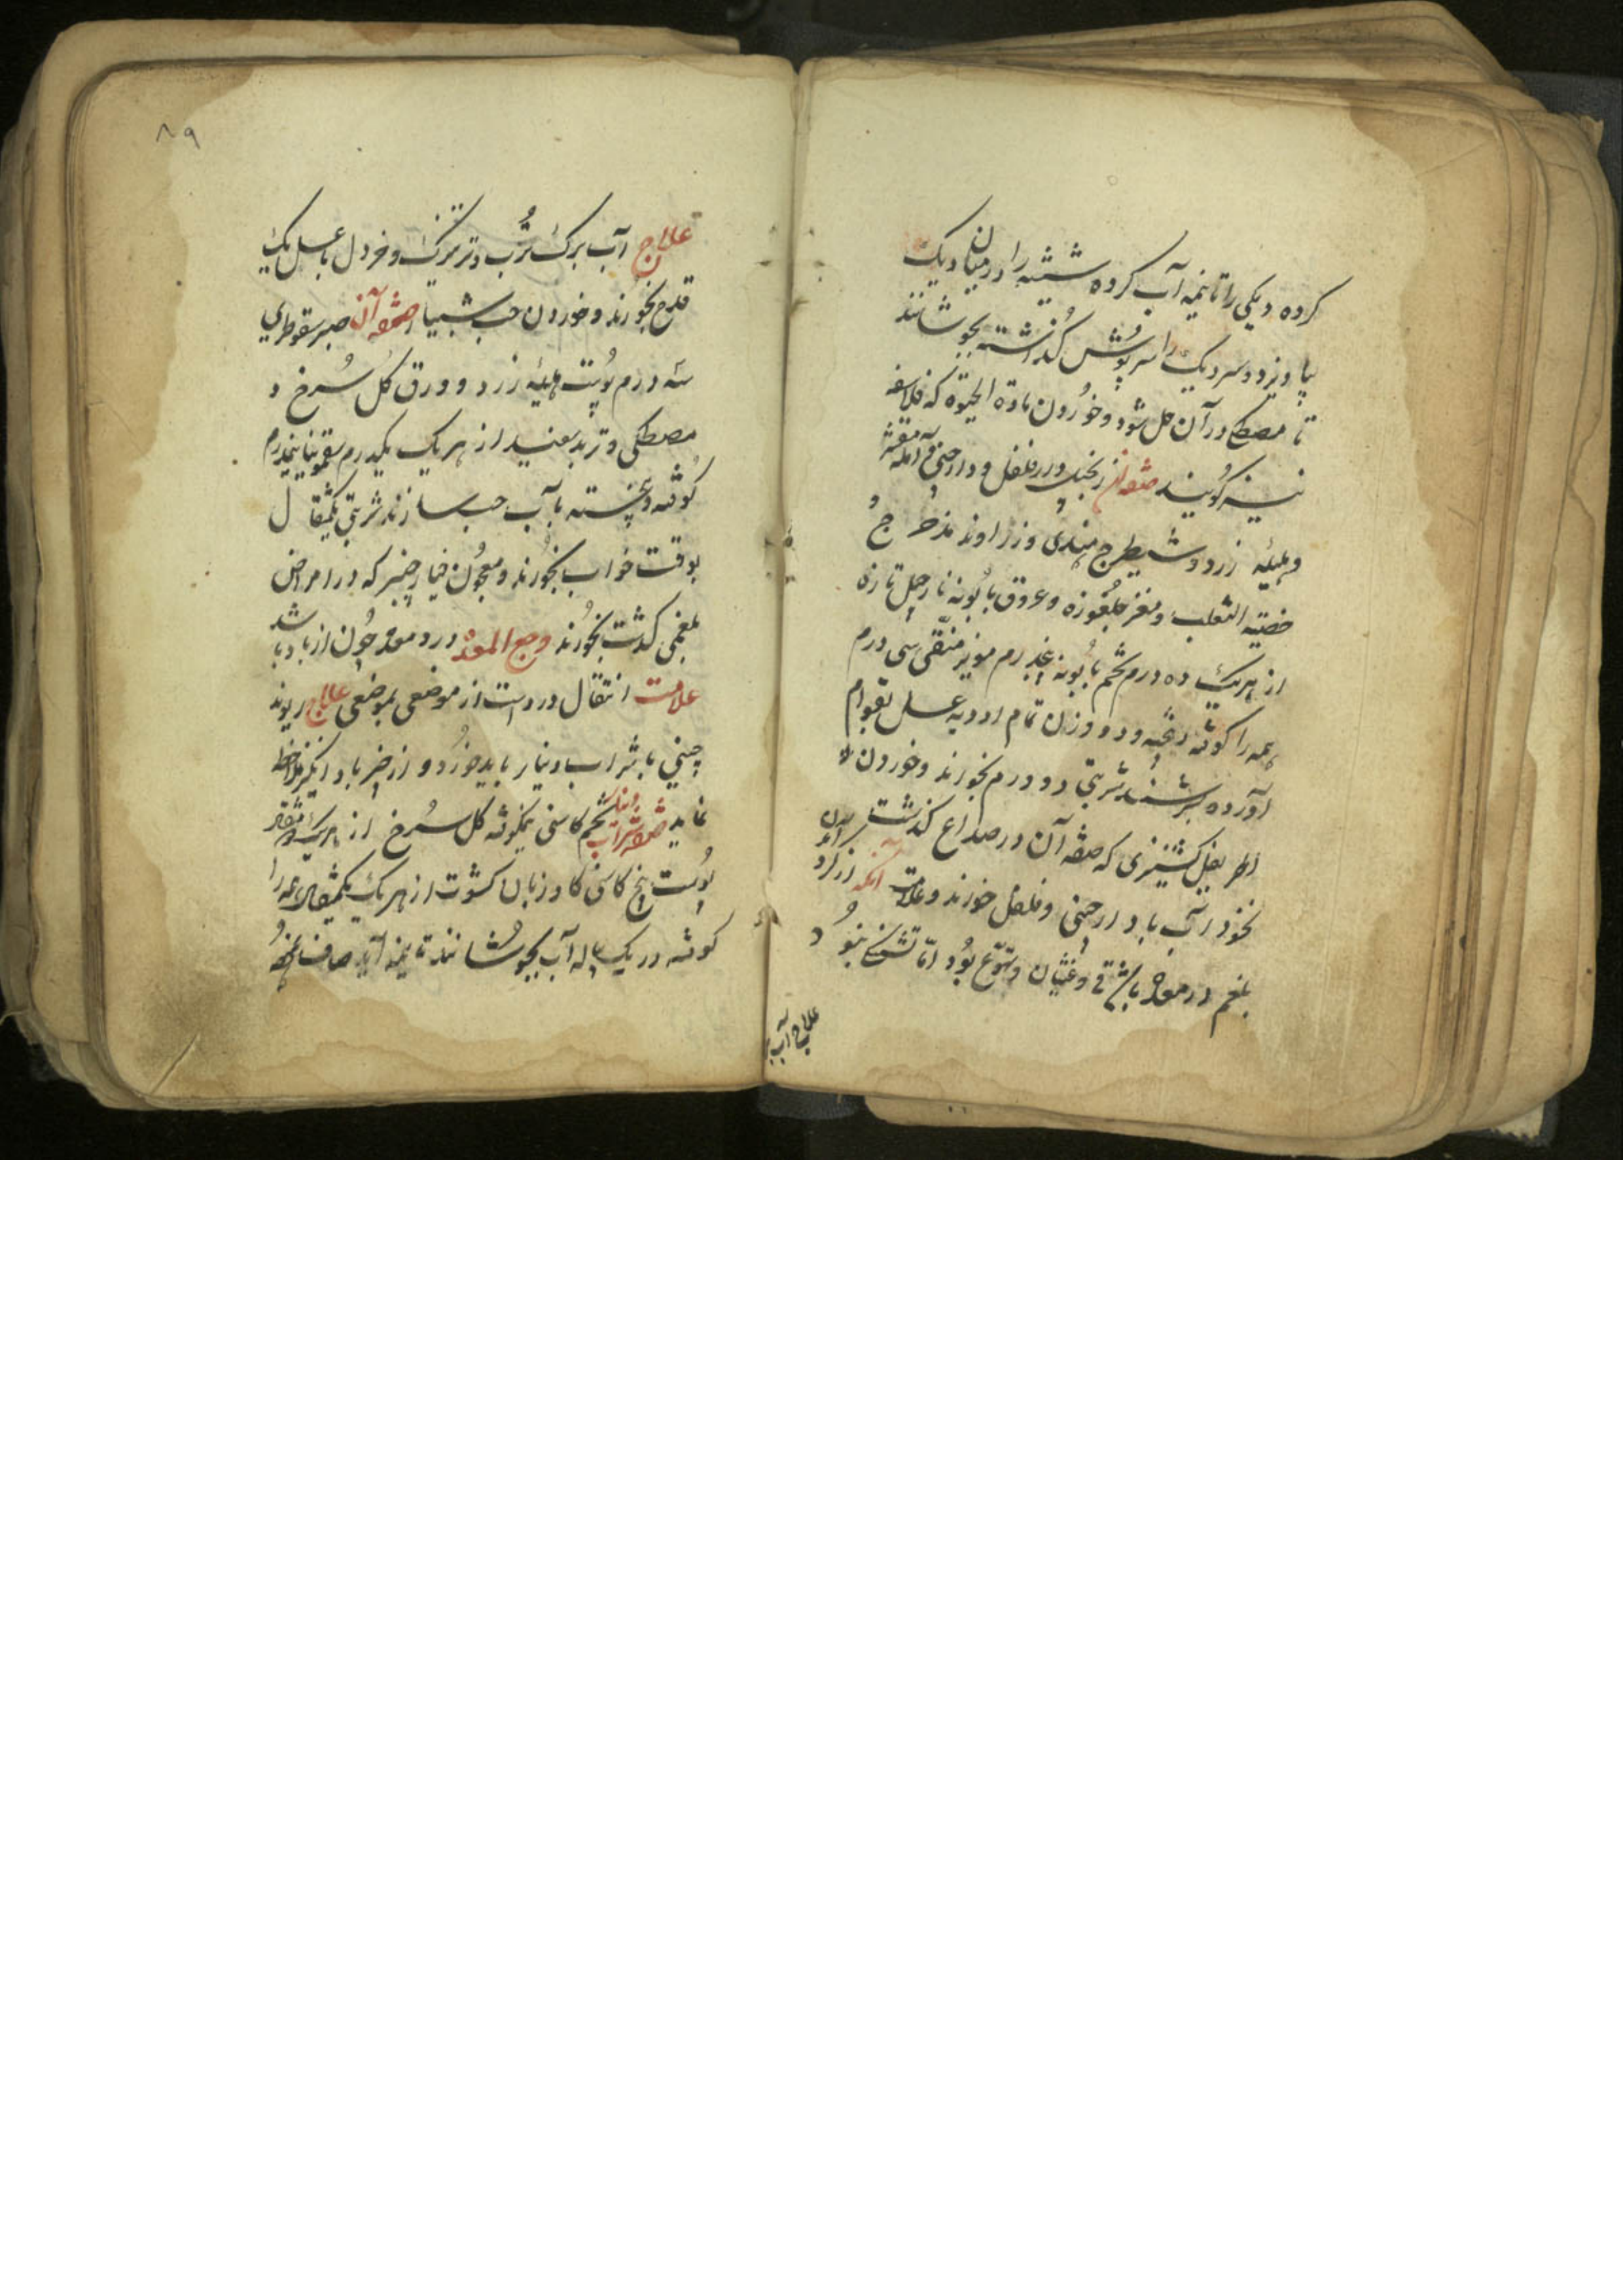 کرده دیکی را تا نیمه آب کرده شیشه را در میان دیک
بیاویزد و سر دیک را سرپوش گذاشته بجوشانند
تا مصطکی در آن حل شود و خوردن مادة الحیوة که فلاسفه
نیز گویند صفة آن زنجبیل و فلفل و دارچینی و آمله مقشر
و هلیله زرد و شیطرج هندی و زراوند مدحرج
خصیة الثعلب و مغز جلغوزه و عروق بابونه نارجیل تازه
از هریک ده درم تخم بابونه درم مویز منقی سی درم
همه را کوفته و بیخته و دو وزن تمام ادویه عسل بقوام
آورده بسرشند شربتی دو درم بخورند و خوردن
اطریفل کشنیزی که صفة آن در صداع گذشت
نخود آب با دارچینی و فلفل خورند و علامت آنکه از
بلغم در معده باشد قی و غثیان و تهوع بود اما تشنگی نبود
علاج آب
۸۹
علاج آب برک ترب و ترتیزک و خردل با عسل یک
قدح بخورند و خوردن حب شبیار صفة آن صبر سقوطری
سه درم پوست هلیله زرد و ورق گل سرخ و
مصطکی و تربد سفید از هر یک یکدرم سقمونیا نیمدرم
کوفته و بیخته بآب حب سازند شربتی یکمثقال
بوقت خواب بخورند و معجون خیارچنبر که در امراض
بلغمی گذشت بخورند وجع المعده درد معده چون از باد باشد
علامت انتقال درد است از موضعی بموضعی علاج ریوند
چینی با شراب دینار باید خورد و از چیز باد انگیز ملاحظه
نماید صفة شراب دینار تخم کاسنی نیمکوفته گل سرخ از هریک دو مثقال
پوست بیخ کاسنی گاوزبان کشوت از هر یک یکمثقال همه را
کوفته در یک پیاله آب بجوشانند تا نیمه آید صاف نموده